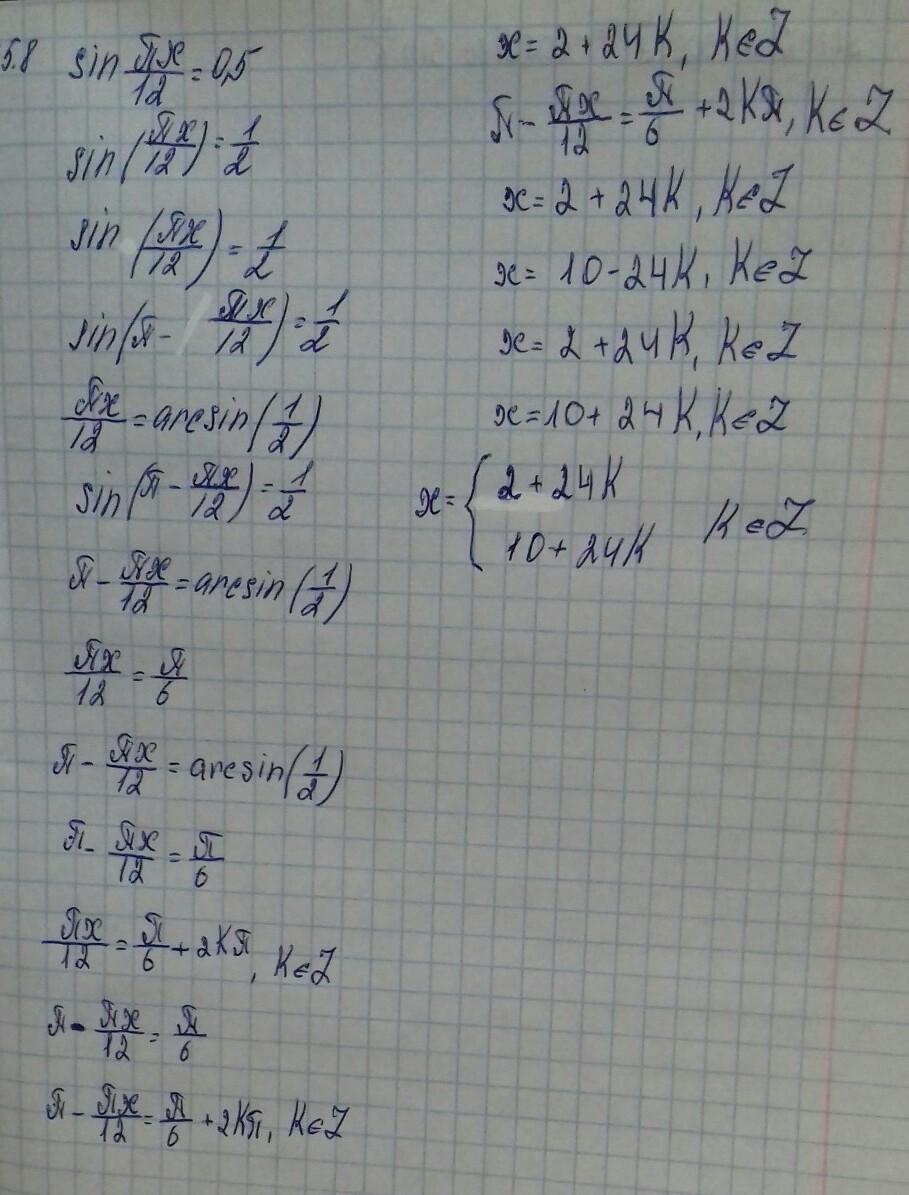 5.8 sin πx/12 = 0,5
sin(πx/12) = 1/2
sin (πx/12) = 1/2
sin(π - πx/12) = 1/2
πx/12 = arcsin(1/2)
sin(π - πx/12) = 1/2
π - πx/12 = arcsin(1/2)
πx/12 = π/6
π - πx/12 = arcsin(1/2)
π - πx/12 = π/6
πx/12 = π/6 + 2Kπ, K∈Z
π - πx/12 = π/6
π - πx/12 = π/6 + 2Kπ, K∈Z
x = 2 + 24K, K∈Z
π - πx/12 = π/6 + 2Kπ, K∈Z
x = 2 + 24K, K∈Z
x = 10 - 24K, K∈Z
x = 2 + 24K, K∈Z
x = 10 + 24K, K∈Z
x = { 2 + 24K
10 + 24K K∈Z